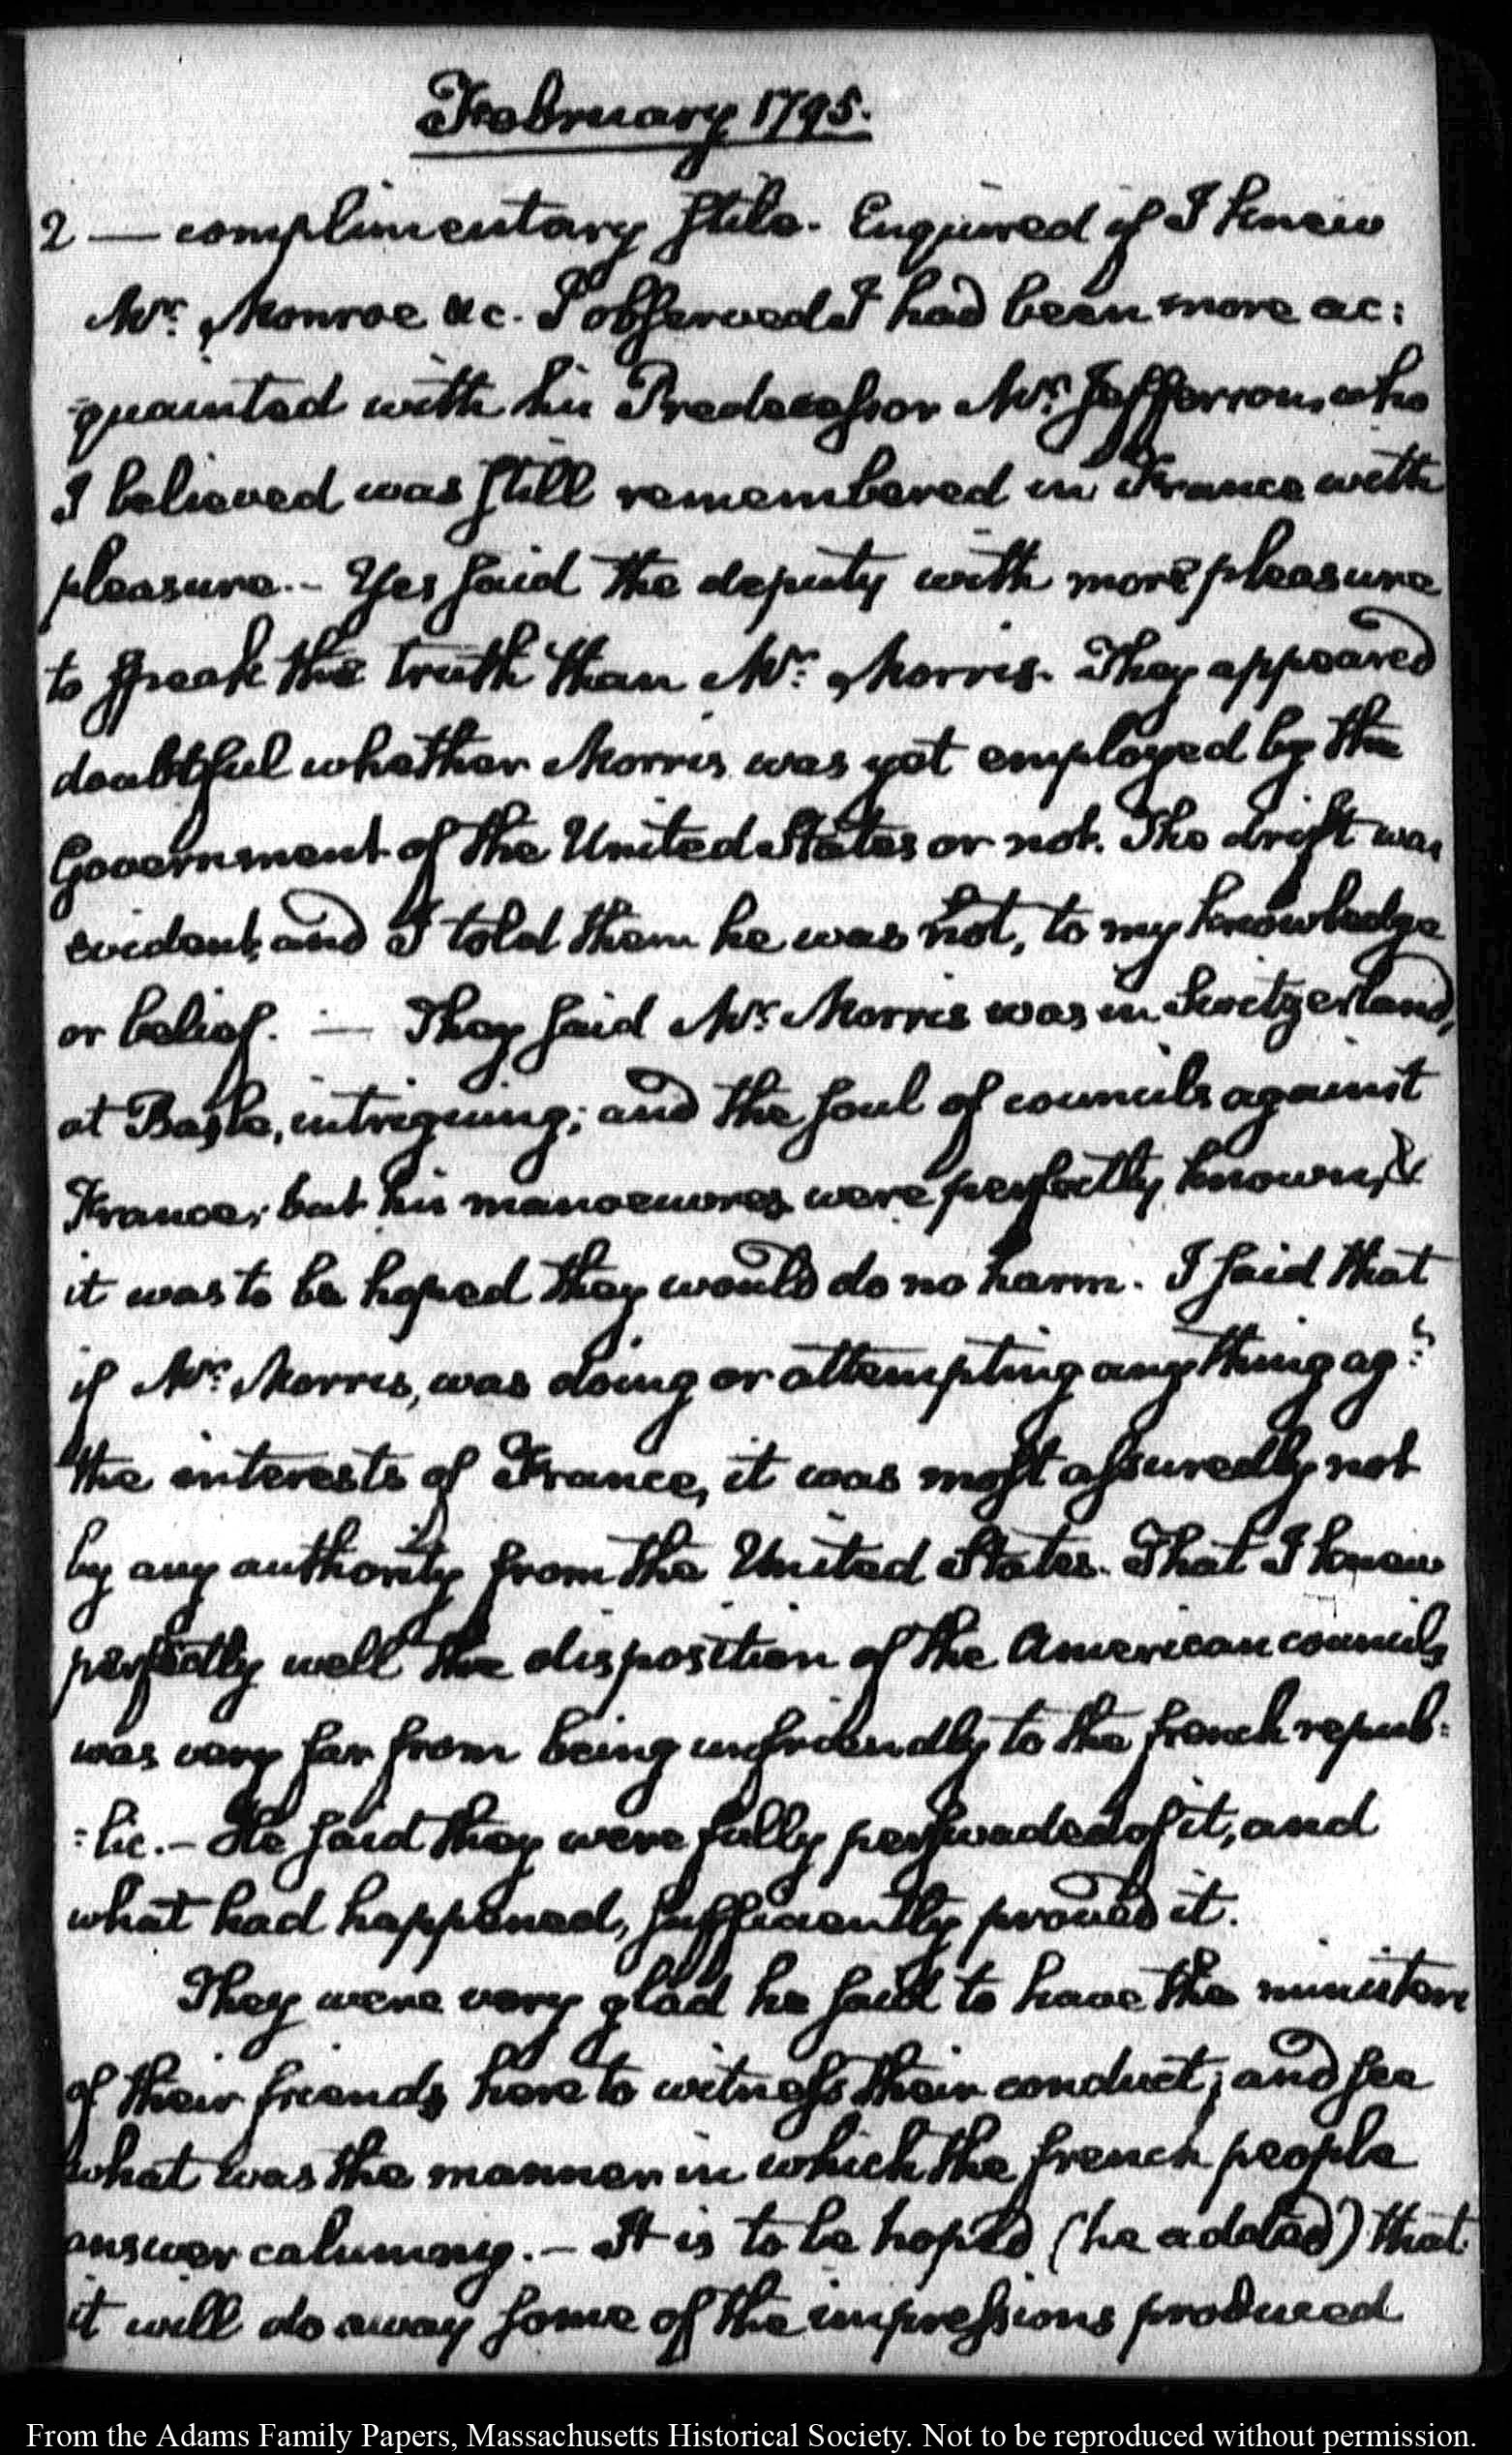 February 1795.
2 — complimentary stile. Enquired if I knew
Mr. Monroe &c. I observed I had been more ac:
quainted with his Predecessor Mr. Jefferson, who
I believed was still remembered in France with
pleasure.- Yes said the deputy with more pleasure
to speak the truth than Mr. Morris. They appeared
doubtful whether Morris was yet employed by the
Government of the United States or not. The drift was
evident, and I told them he was not, to my knowledge
or belief. — They said Mr. Morris was in Switzerland,
at Basle, intriguing; and the soul of councils against
France; but his manoeuvres were perfectly known, &
it was to be hoped they would do no harm. I said that
if Mr. Morris, was doing or attempting any thing agt.
the interests of France, it was most assuredly not
by any authority from the United States. That I knew
perfectly well the disposition of the American councils
was very far from being unfriendly to the french repub:
:lic.- He said they were fully perswaded of it, and
what had happened, sufficiently proved it.
They were very glad he said to have the ministers
of their friends here to witness their conduct; and see
what was the manner in which the french people
answer calumny.- It is to be hoped (he added) that
it will do away some of the impressions produced
From the Adams Family Papers, Massachusetts Historical Society. Not to be reproduced without permission.